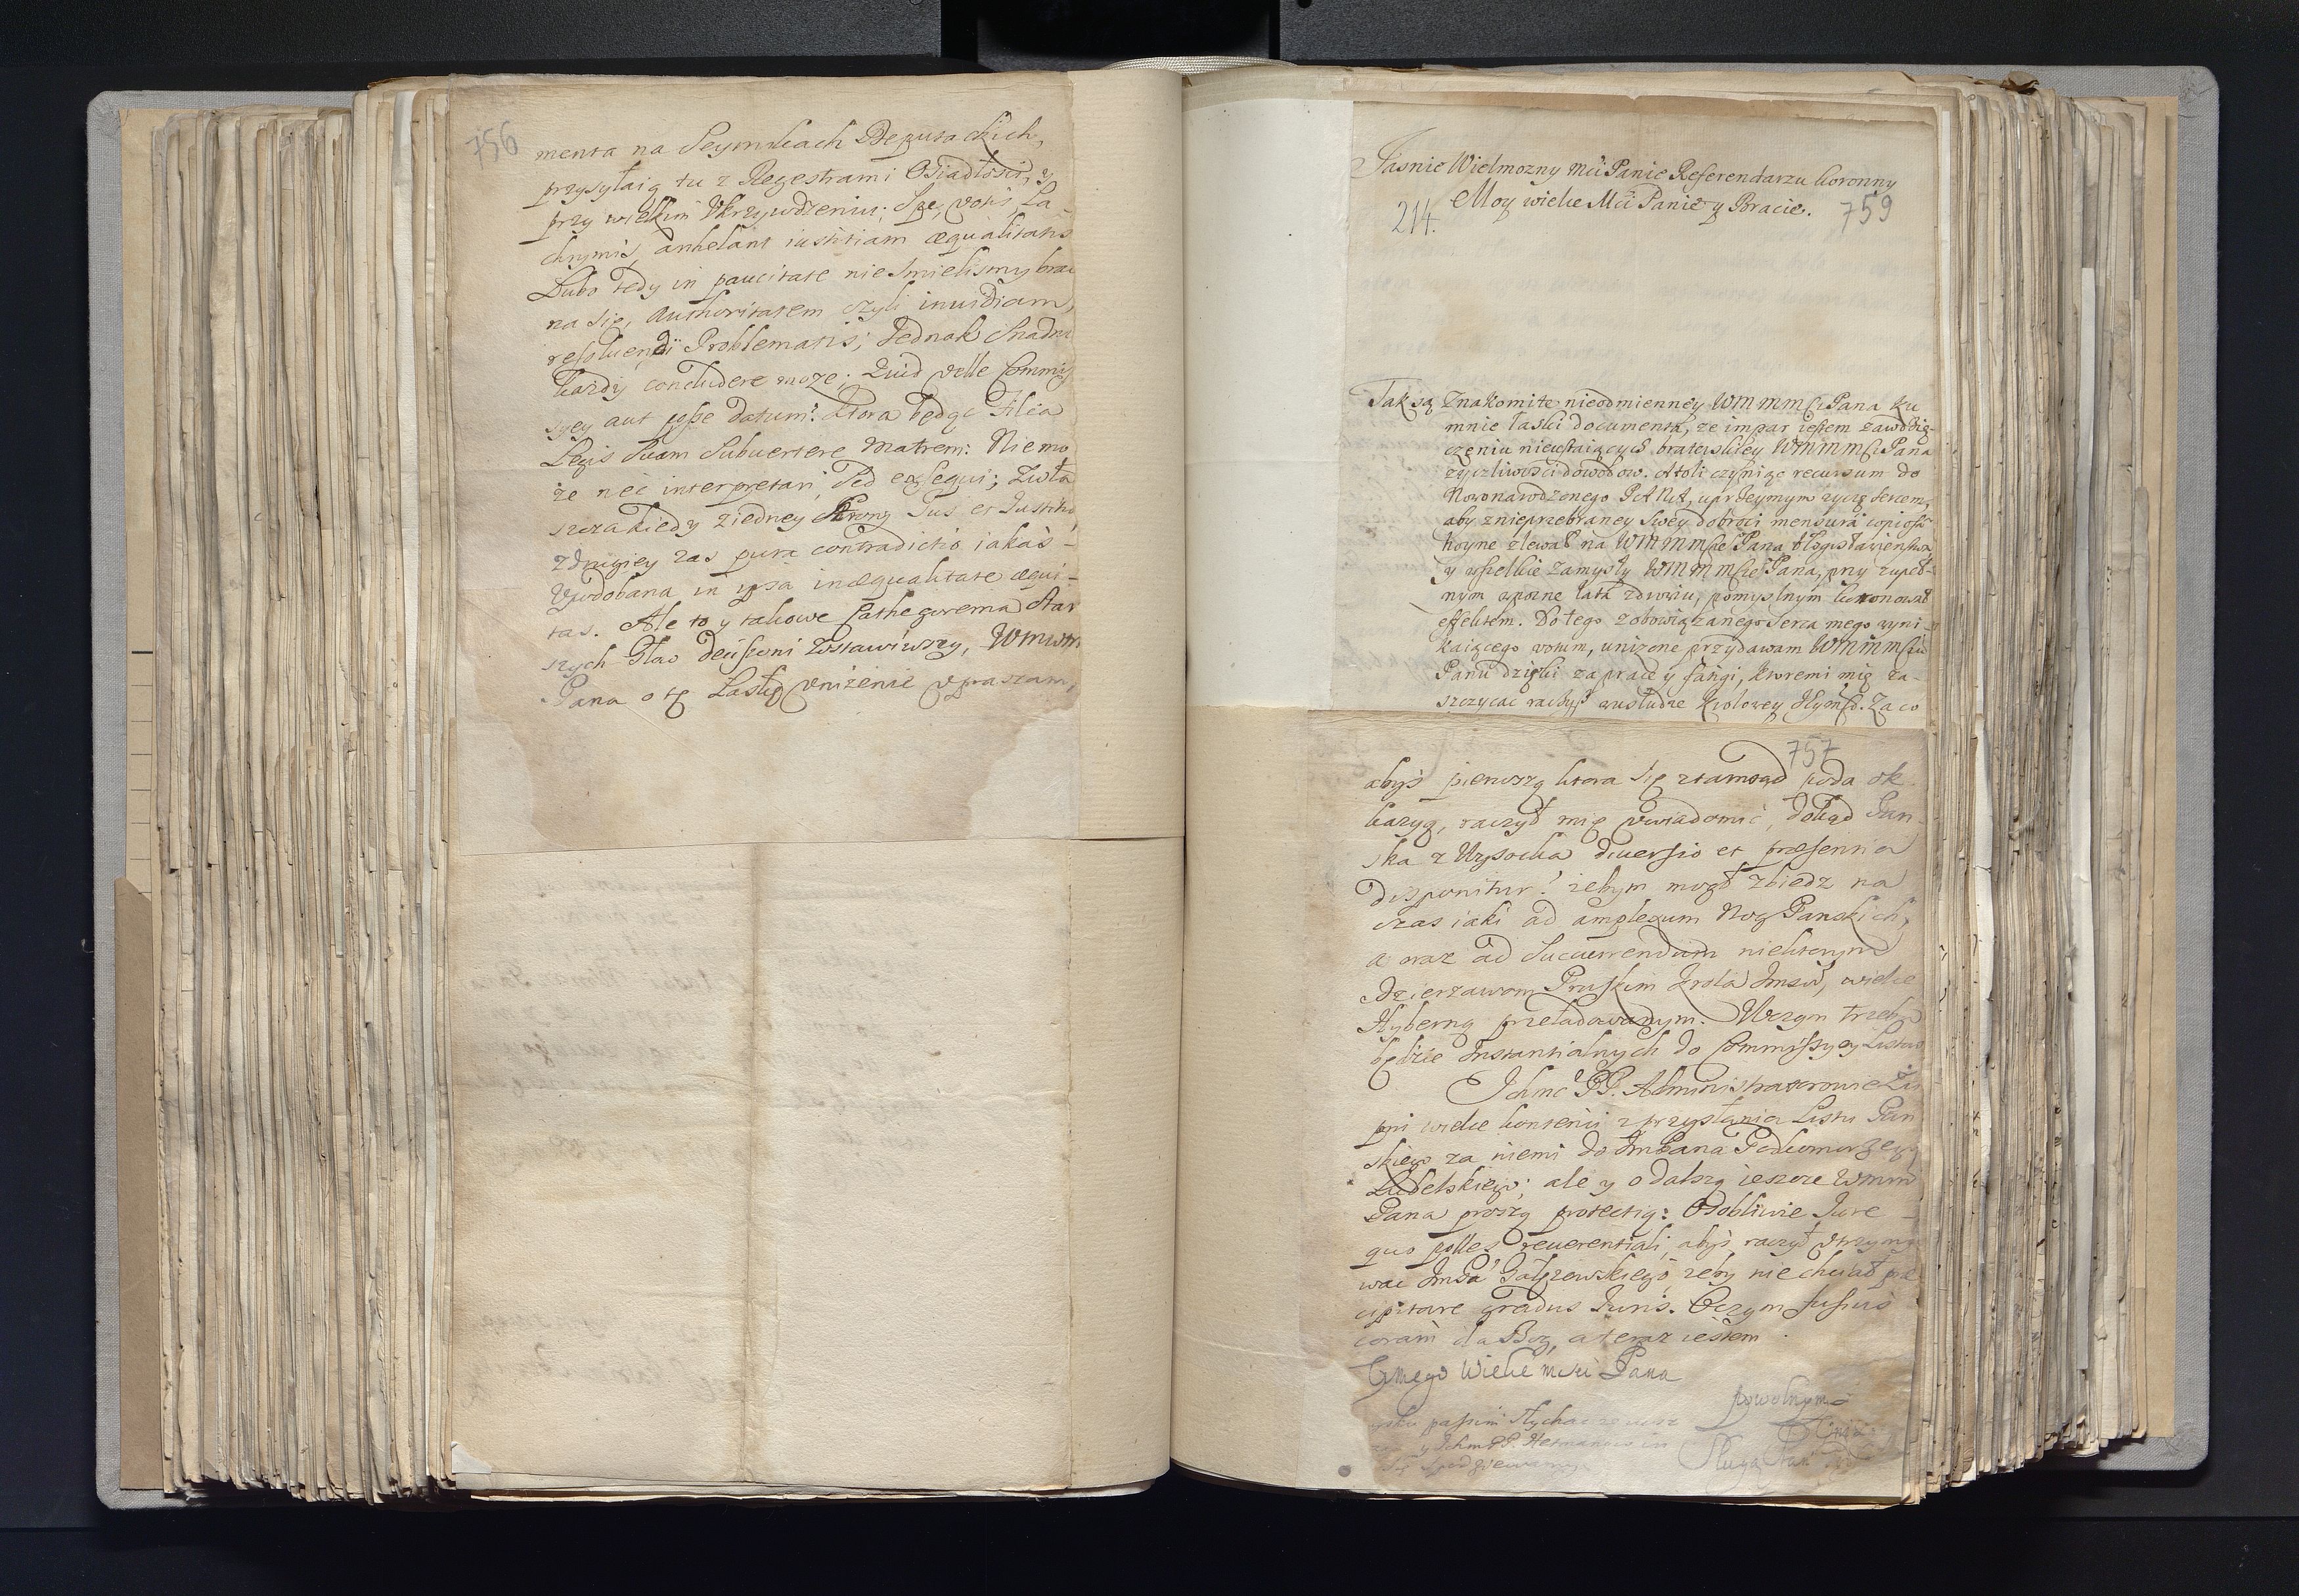 756
menta na Seymikach Deputackich,
przysyłaią tu z Regestrami Osiadłości, y
przy wielkim Vkrzywdzeniu; Spe, votis, La-
chrymis, anhelant iustitiam æqualitatis
Lubo tedy in paucitate nie smielismy brac
na się, Authoritatem czyli inuidiam,
resoluendi Problematis; Jednak snadno
każdy concludere może; Quid velle Commis
syey aut posse datum? Ktora będąc Filia
Legis Suam Subuertere Matrem: Niemo
że nec interpretari, Sed exsequi; Zwła
szcza kiedy ziedney Strony Jus et Justitia,
zdrugiey zas pura contradictio iakas-
Vpodobana in ipsa inæqualitate æqui-
tas. Ale to y takowe Pathegorema Star
szych Głow decisioni zostawiwszy, Wmwm
Pana o tę Łaskę vniżenie vpraszam,
Jasnie Wielmozny Mći Panie Referendarzu koronny
214. Moy wielce Mći Panie y Bracie. 759
Tak są Znakomite nieodmienney WMMMści Pana ku
mnie łaski documenta, ze impar iestem zawdzię-
czeniu nieustaiących braterskiey WMMMści Pana
zyczliwosci dowodow. Atoli czyniąc recursum do
Nowonarodzonego PANA, uprzeymym zyczę sercem,
aby znieprzebraney swey dobroci mensurâ copiosâ
hoyne zlewał na WMMMśće Pana błogosławienstwa,
y wszelkie zamysły WMMMśće Pana, przy zupeł-
nym apozne lata zdrowiu, pomyslnym koronował
effektem. Do tego zobowiązanego serca mego wyni-
kaiącego votum, unizone przydawam WMMMści
Panu dzięki za prace y fatigi, ktoremi mię za-
szczycac raczysz wusłudze Krolowey JeyMśći. Za co
757
abyś pierwszą ktora się ztamtąd poda ok
kazyą, raczył mię vwiadomić, dokąd Pan
ska z Wysocka diuersio et præsentia
disponitur? żebym mogł zbiedz na
czas iaki ad amplexum Nog Panskich,
a oraz ad Succurrendum niektorym
Dzierzawom Pruskim Krola Jmści, wielce
Hyberną przeładowanym. Wczym trzeba
będzie Instantialnych do Commissyey Listow
Ichmć PP. Administratorowie Zu
pni wielce kontenci z przysłania Listu Pan
skiego za niemi do JmPana Podkomorzego
Lubelskiego; ale y o dalszą ieszcze Wmm
Pana proszą protectią: Osobliwie Jure-
quo polles reuerentiali, abyś raczył vtrzymy
wac JmPa Gałęzewskiego, żeby nie chciał præ
cipitare gradus Juris. Oczym fusius
coram da Bog, a teraz iestem
Wmego Wielce Mści Pana
powolnym
passim słychac
y Ichm PP. Hetmanow
się spodziewamy
Sługą